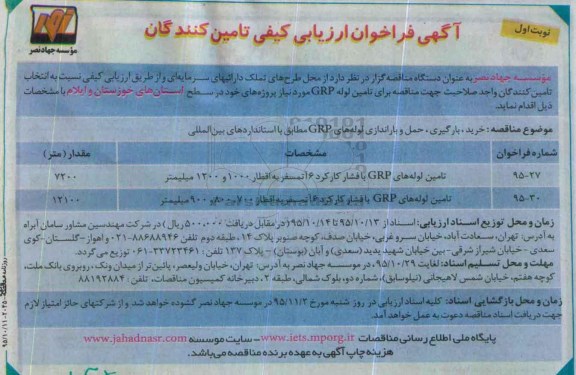 نوبت اول
آگهی فراخوان ارزیابی کیفی تامین کنندگان
مؤسسه جهاد نصر
مؤسسه جهاد نصر به عنوان دستگاه مناقصه گزار در نظر دارد از محل طرح‌های تملک دارائیهای سرمایه‌ای و از طریق ارزیابی کیفی نسبت به انتخاب
تامین کنندگان واجد صلاحیت جهت مناقصه برای تامین لوله GRP مورد نیاز پروژه‌های خود در سطح استان‌های خوزستان و ایلام با مشخصات
ذیل اقدام نماید.
موضوع مناقصه: خرید، بارگیری، حمل و باراندازی لوله‌های GRP مطابق با استانداردهای بین‌المللی
شماره فراخوان مشخصات مقدار (متر)
۹۵-۲۷ تامین لوله‌های GRP با فشار کارکرد ۶ اتمسفر به اقطار ۱۰۰۰ و ۱۲۰۰ میلیمتر ۷۲۰۰
۹۵-۳۰ تامین لوله‌های GRP با فشار کارکرد ۶ اتمسفر به اقطار و ۹۰۰ میلیمتر ۱۲۱۰۰
زمان و محل توزیع اسناد ارزیابی: اسناد از ۹۵/۱۰/۱۳ تا ۹۵/۱۰/۱۴ (در مقابل دریافت ۵۰۰،۰۰۰ ریال) در شرکت مهندسین مشاور سامان آبراه
به آدرس: تهران، سعادت آباد، خیابان سرو غربی، خیابان صدف، کوچه صنوبر پلاک ۱۴، طبقه دوم تلفن ۸۸۶۸۸۹۴۶-۰۲۱ و اهواز-گلستان-کوی
سعدی - خیابان شیراز شرقی-بین خیابان شهید پدید (سعدی) و آبان (بوستان) - پلاک ۱۳۷ تلفن: ۳۳۷۲۳۴۶۱-۰۶۱ توزیع می گردد.
مهلت و محل تسلیم اسناد: لغایت ۹۵/۱۰/۲۹، در موسسه جهاد نصر به آدرس: تهران، خیابان ولیعصر، پائین‌تر از میدان ونک، روبروی بانک ملت،
کوچه هفتم، خیابان شمس لاهیجانی (نیلوسابق)، شماره دو، بلوک شمالی، طبقه ۲، دبیرخانه کمیسیون مناقصات، تلفن: ۸۸۱۹۳۸۸۴
زمان و محل بازگشایی اسناد: کلیه اسناد ارزیابی در روز شنبه مورخ ۹۵/۱۱/۲ در موسسه جهاد نصر گشوده خواهد شد. و از شرکتهای حائز امتیاز لازم
جهت دریافت اسناد مناقصه دعوت به عمل خواهد آمد.
پایگاه ملی اطلاع رسانی مناقصات www.iets.mporg.ir - سایت موسسه www.jahadnasr.com
هزینه چاپ آگهی به عهده برنده مناقصه می‌باشد.